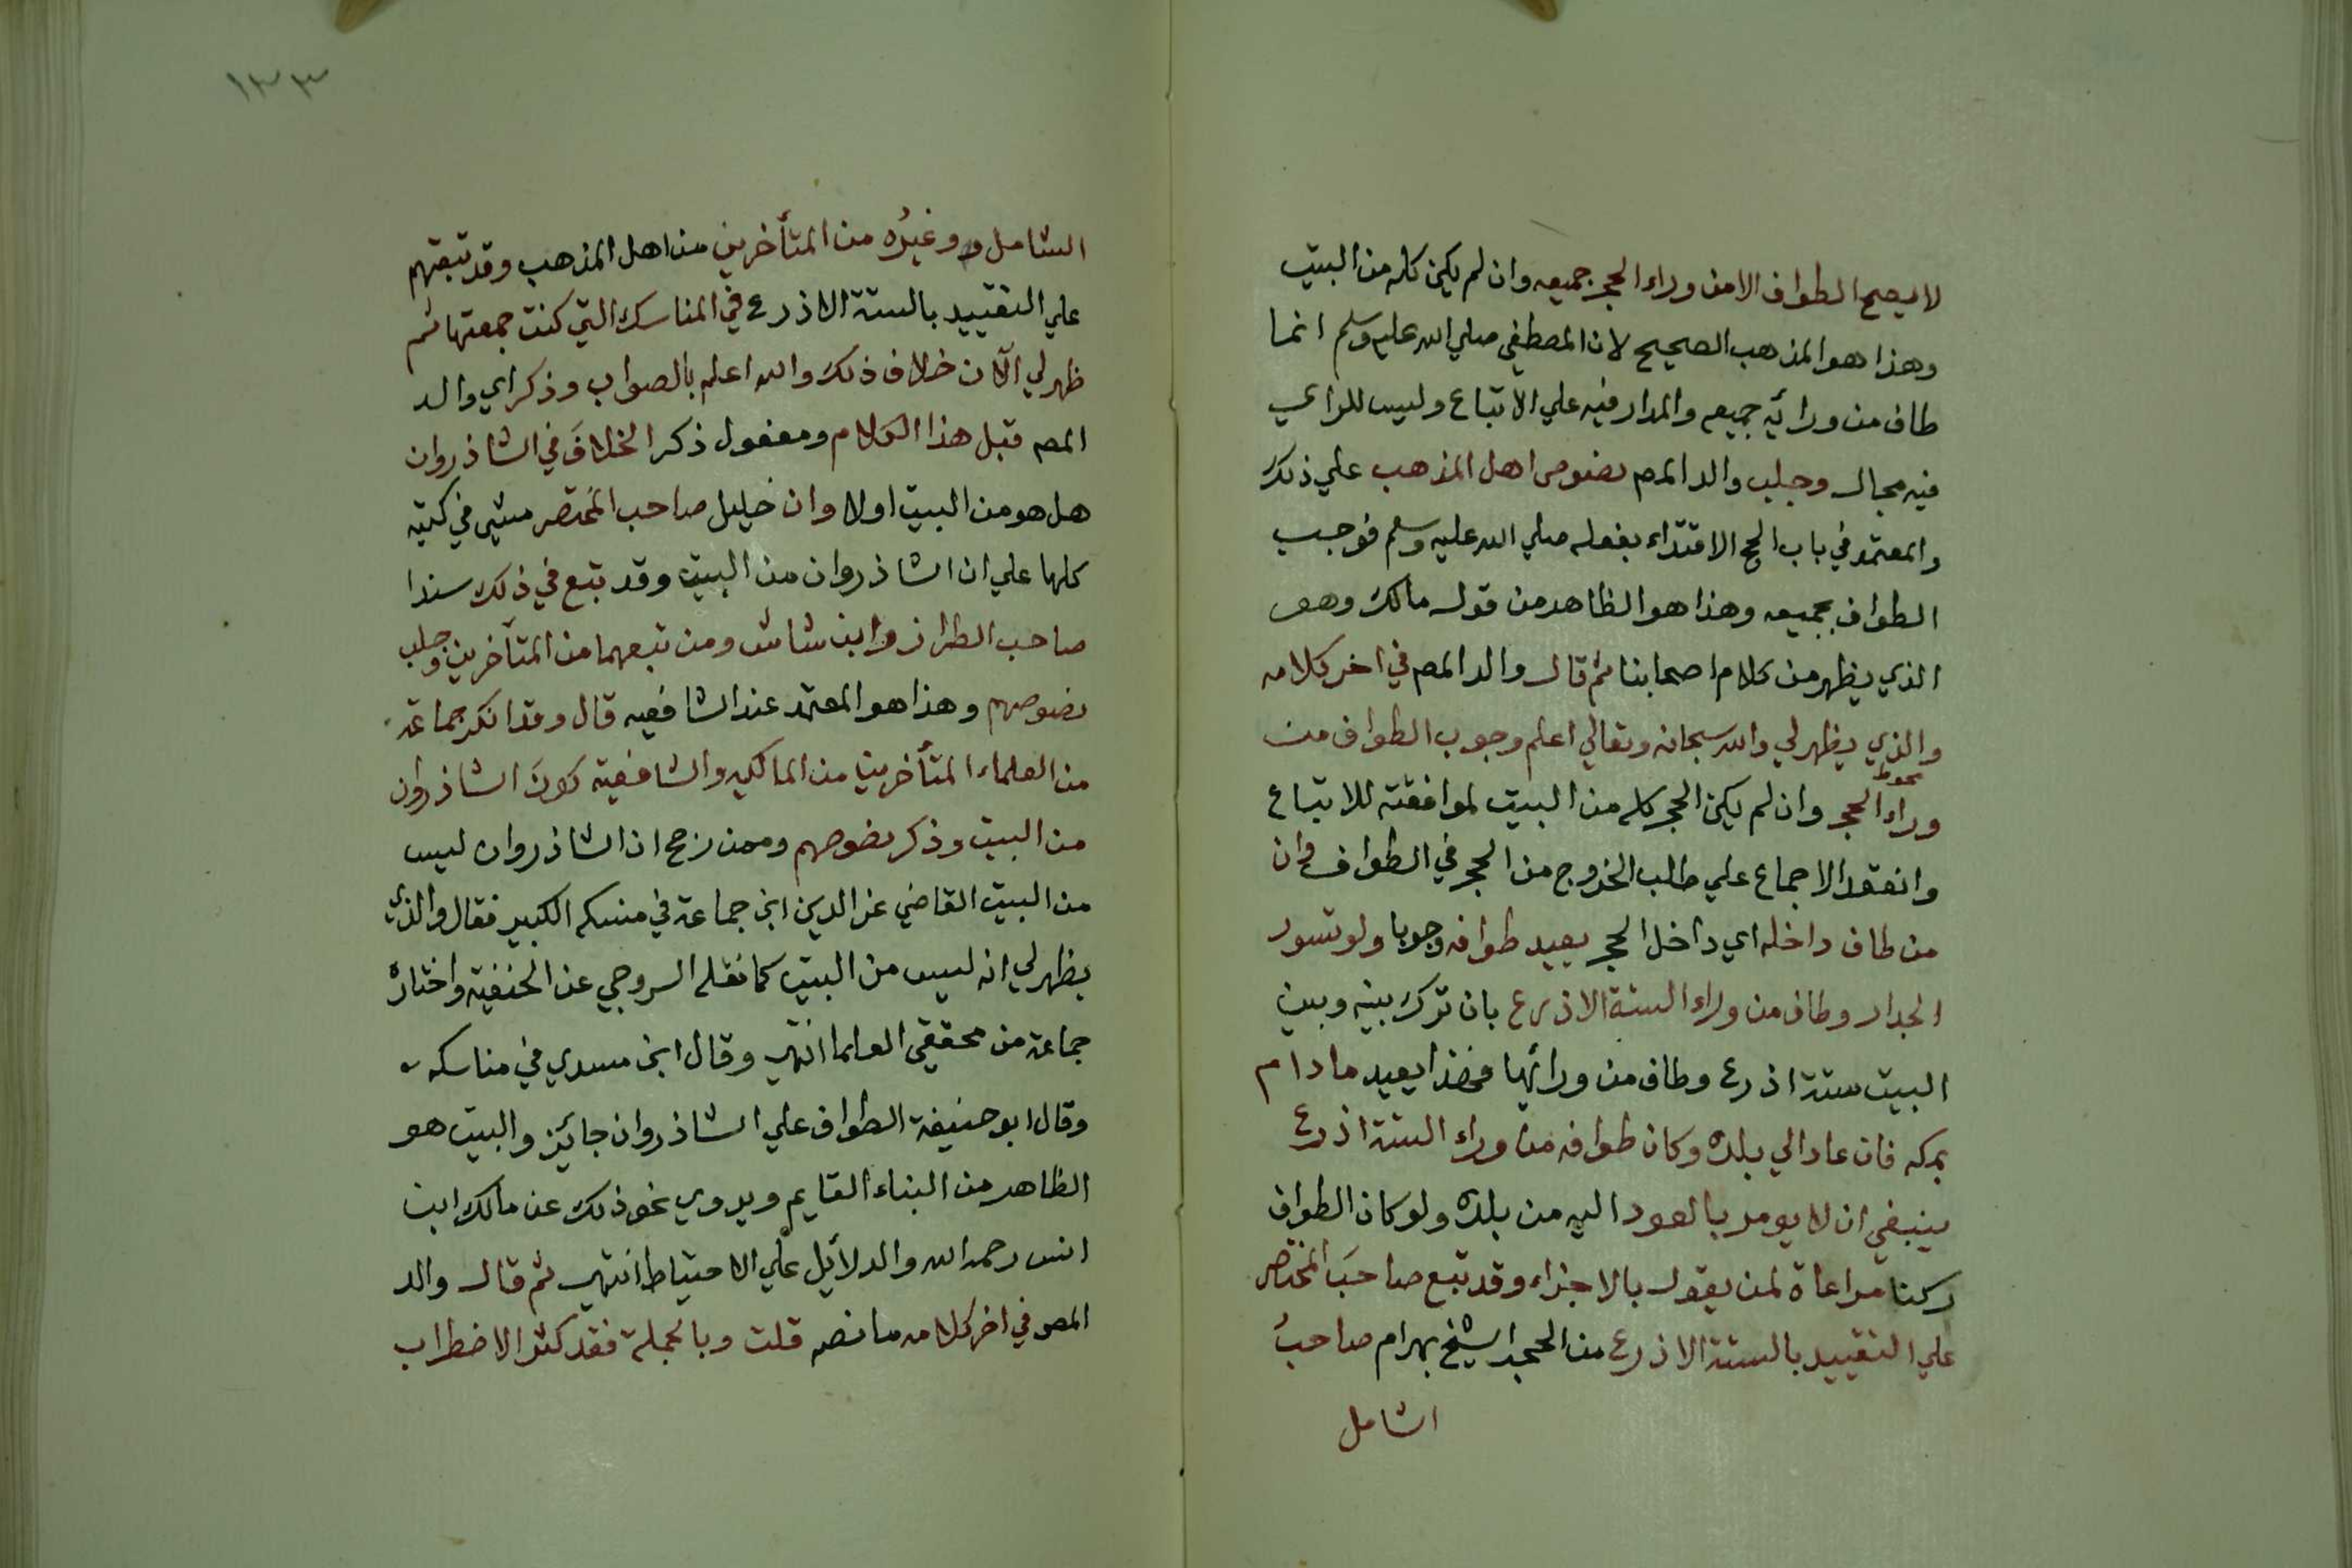 لا يصح الطواف الا من وراء الحجر جميعه وان لم يكن كله من البيت
وهذا هو المذهب الصحيح لان المصطفي صلي الله عليه وسلم انما
طاف من ورائه جميعه والمدار فيه علي الاتباع وليس للراي
فيه مجال وجلب والد المص نصوص اهل المذهب علي ذلك
والمعتمد في باب الحج الاقتداء بفعله صلي الله عليه وسلم فوجب
الطواف بجميعه وهذا هو الظاهر من قول مالك وهو
الذي يظهر من كلام اصحابنا ثم قال والد المص في اخر كلامه
والذي يظهر لي والله سبحانه وتعالي اعلم وجوب الطواف من
محوط
وراء الحجر وان لم يكن الحجر كله من البيت لموافقته للاتباع
وانعقد الاجماع علي طلب الخروج من الحجر في الطواف وان
من طاف داخله اي داخل الحجر يعيد طوافه وجوبا ولو تسور
الجدار وطاف من وراء الستة الاذرع بان ترك بينه وبين
البيت ستة اذرع وطاف من ورائها فهذا يعيد ما دام
بمكه فان عاد الي بلده وكان طوافه من وراء الستة اذرع
ينبغي ان لا يومر بالعود اليه من بلده ولو كان الطواف
ركنا مراعاة لمن يقول بالاجزاء وقد تبع صاحبَ المختصر
علي التقييد بالستة الاذرع من الحجر الشيخ بهرام صاحبُ
الشامل
١٣٣
الشامل و وغيرُه من المتأخرين من اهل المذهب وقد تبعتهم
علي التقييد بالستة الاذرع في المناسك التي كنت جمعتها ثم
ظهر لي الآن خلاف ذلك والله اعلم بالصواب وذكر اي والد
المص قبل هذا الكلام ومفعول ذكر الخلافَ في الشاذروان
هل هو من البيت اولا وان خليل صاحب المختصر مشي في كتبه
كلها علي ان الشاذروان من البيت وقد تبع في ذلك سندا
صاحب الطراز وابن شاش ومن تبعهما من المتأخرين وجلب
نصوصهم وهذا هو المعتمد عند الشافعيه قال وقد انكر جماعة
من العلماء المتأخرين من المالكيه والشافعية كونَ الشاذروان
من البيت وذكر نصوصهم وممن رجح ان الشاذروان ليس
من البيت القاضي عز الدين ابن جماعة في منسكه الكبير فقال والذي
يظهر لي انه ليس من البيت كما نقله السروجي عن الحنفية واختاره
جماعة من محققي العلما انتهي وقال ابن مسدي في مناسكه
وقال ابو حنيفة الطواف علي الشاذروان جائز والبيت هو
الظاهر من البناء القايم ويروي نحو ذلك عن مالك ابن
انس رحمه الله والدلائل علي الاحتياط انتهي ثم قال والد
المص في اخر كلامه ما نصه قلت وبالجملة فقد كثر الاضطراب